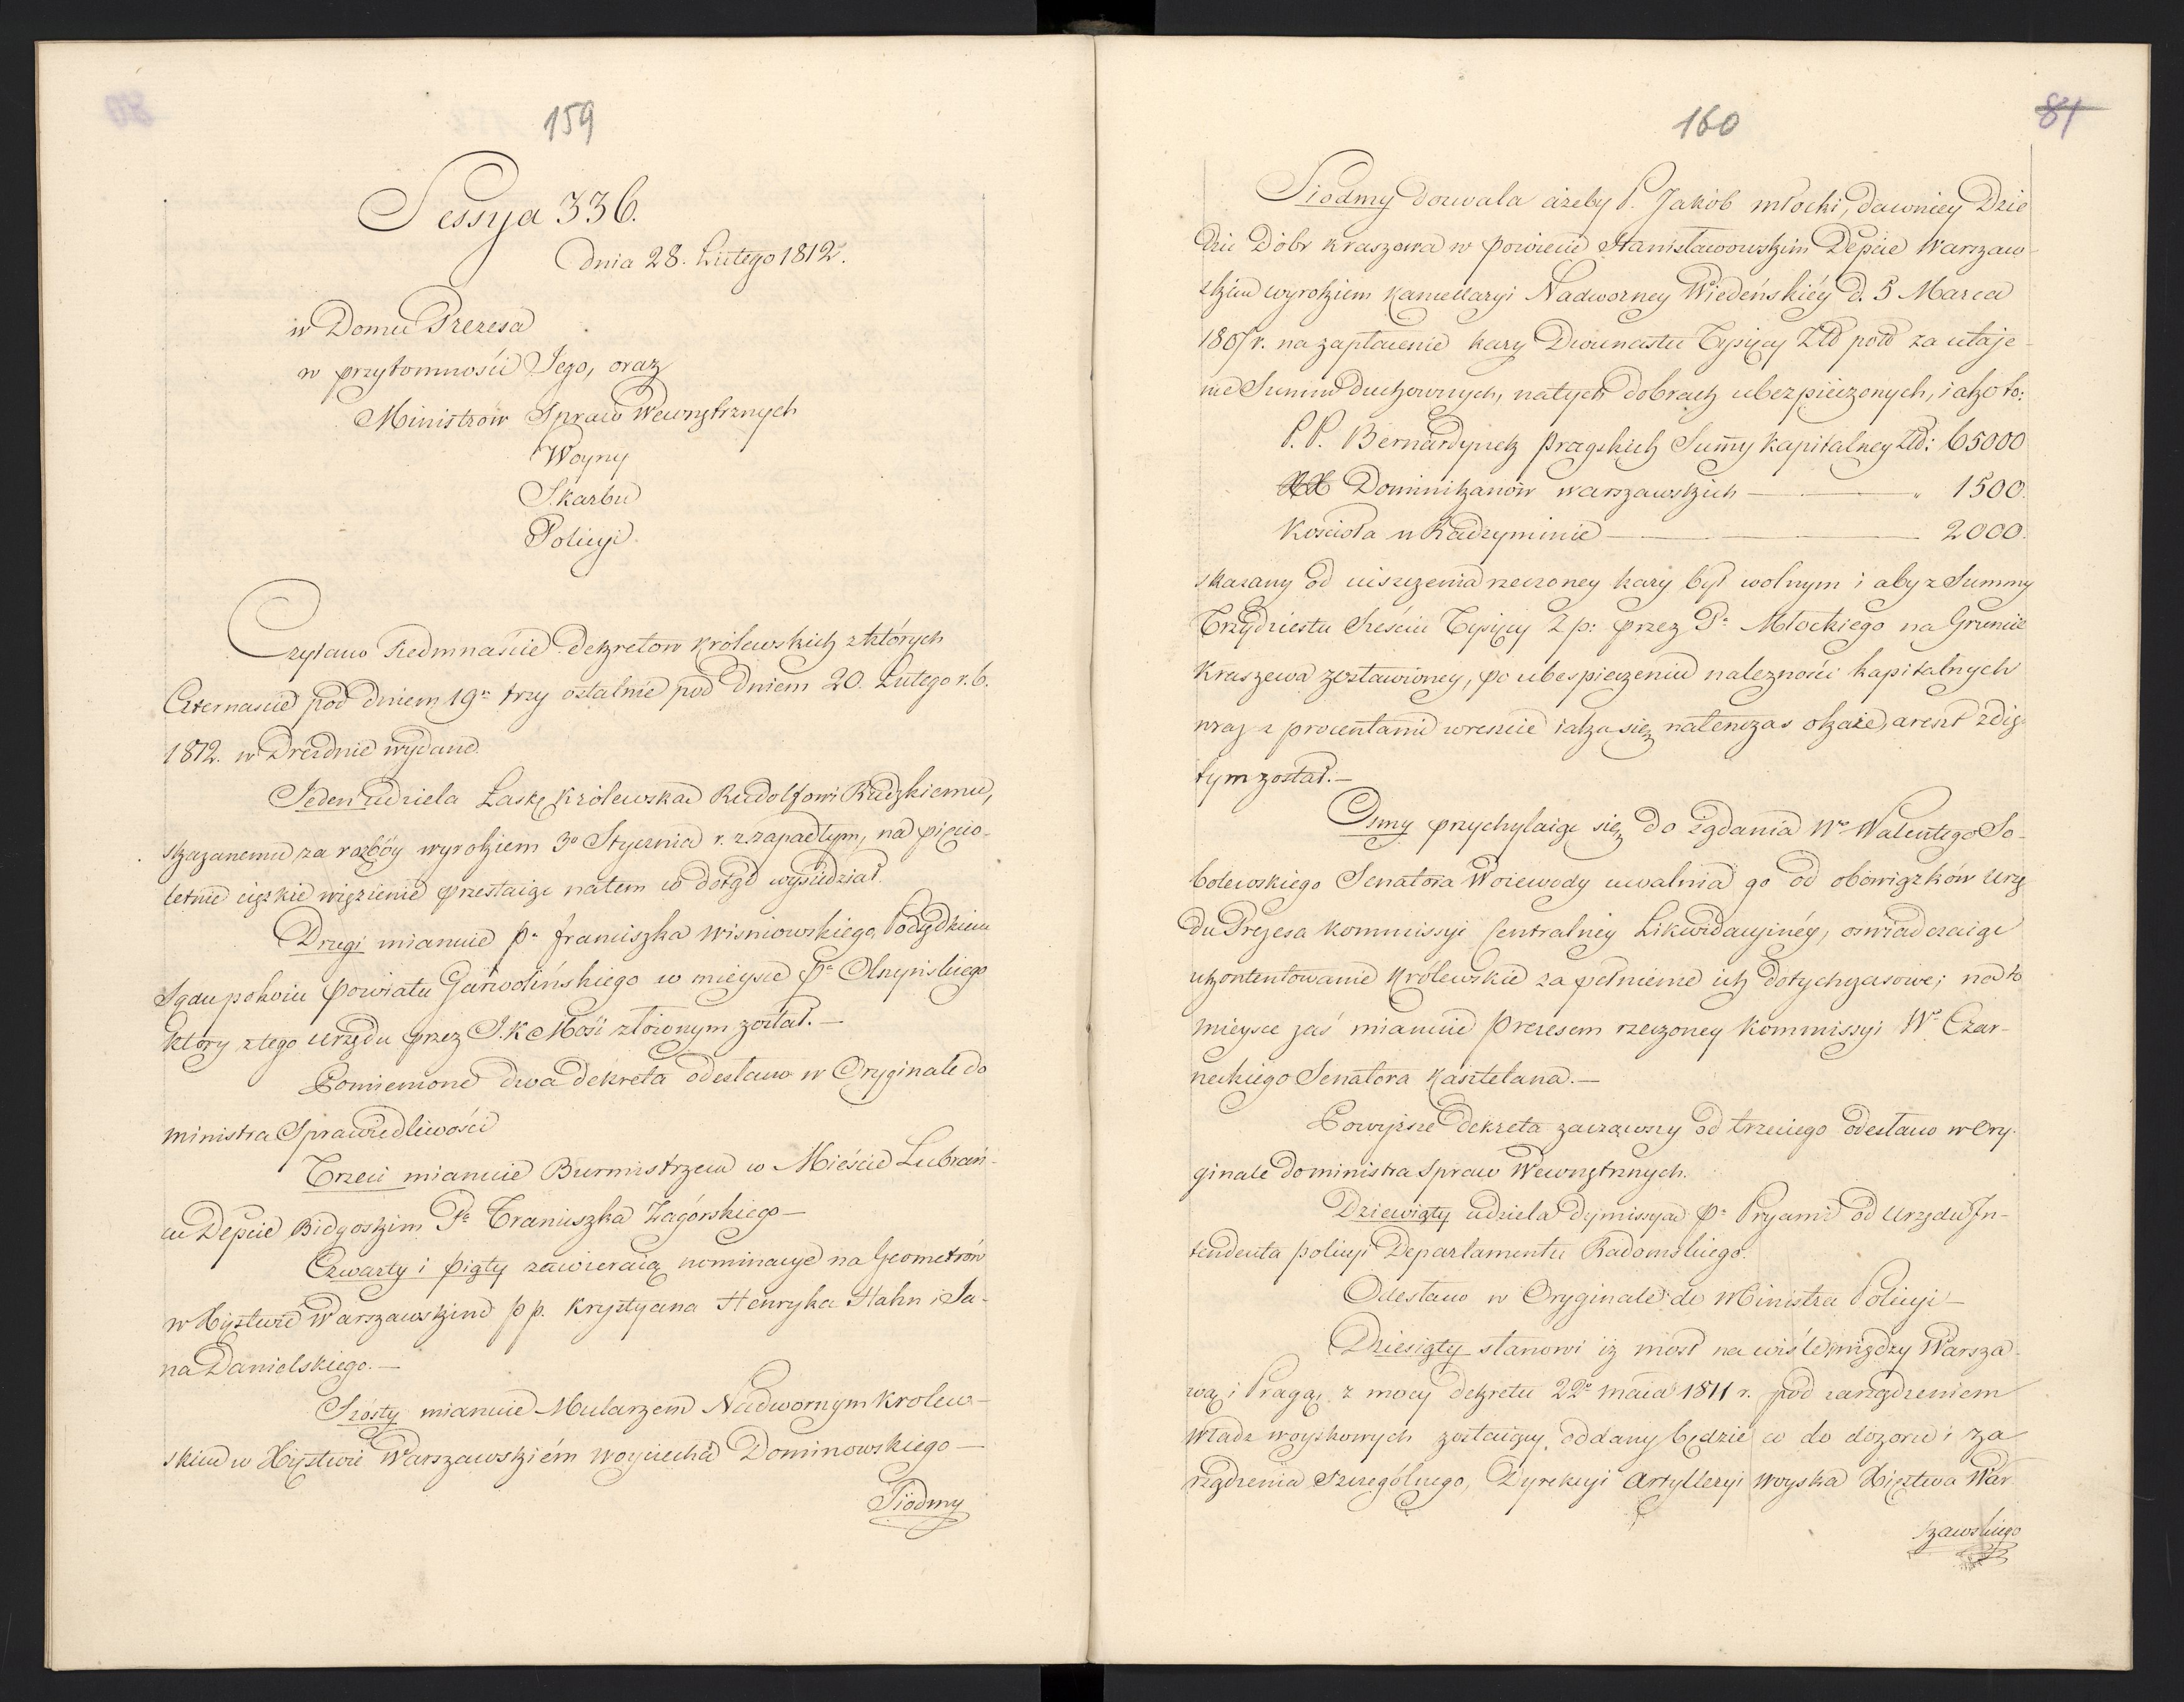 159
Sessya 336.
dnia 28. Lutego 1812.
w Domu Prezesa
w przytomności Jego, oraz
Ministrów Spraw Wewnętrznych
Woyny
Skarbu
Policyi.
Czytano Siedmnaście Dekretow Królewskich z których
Czternaście pod dniem 19° trzy ostatnie pod dniem 20. Lutego r. b.
1812. w Dreznie wydane.
Jeden udziela Łaskę Królewską Rudolfowi Rudzkiemu,
skazanemu za rozbóy wyrokiem 3° Stycznia r. z. zapadłym, na pięcio-
letnie cięzkie więzienie przestaiąc na tem co dotąd wysiedział.
Drugi mianuie Pa Franciszka Wisniowskiego, Podsędkiem
Sądu pokoiu Powiatu Garwolińskiego w mieysce Pa
ktory z tego urzędu przez J. K. Mość złożonym został.—
Pomienione dwa dekreta odesłano w Oryginale do
Ministra Sprawiedliwości
Trzeci mianuie Burmistrzem w Mieście Lubrań-
cu Depcie Bidgoskim Pa Franiszka Zagórskiego—
Czwarty i piąty zawieraią nominacye na Geometrów
w Xięstwie Warszawskim pp. Krystyana Henryka Hahn i Ja-
na Danielskiego.—
Szosty mianuie Mularzem Nadwornym Krolew-
skim w Xięstwie Warszawskiém Woyciecha Dominowskiego—
Siodmy
160
81
Siodmy dozwala ażeby P. Jakób Młocki, dawniey Dzie
dzic Dóbr Kraszewa w powiecie Stanisławowskim Depcie Warszaw-
skim wyrokiem Kancellaryi Nadworney Wiedeńskiéy d. 5 Marca
180 r. na zapłacenie kary Dwunastu Tysięcy Złł pols za utaje-
nie Summ duchownych, na tych dobrach ubezpieczonych, iako to:
P. P. Bernardynek Pragskich Summy Kapitalney Złł: 65000
XX Dominikanów warszawskich — " 1500.
Kościoła w Radzyminie — 2000.
skazany od uiszczenia rzeczoney kary był wolnym i aby z Summy
Trzydziestu Sześciu Tysięcy Zp: przez Pa Młockiego na Gruncie
Kraszewa zostawioney, po ubespieczeniu nalezności kapitalnych
wraz z procentami wreszcie iaka się natenczas okaże, areszt zdię-
tym został.—
Osmy przychylaiąc się do żądania Wo Walentego So-
bolewskiego Senatora Woiewody uwalnia go od obowiązków Urzę
du Prezesa Kommissyi Centralney Likwidacyinéy, oswiadczaiąc
ukontentowanie Królewskie za pełnienie ich dotychczasowe; na to
mieysce zaś mianuie Prezesem rzeczoney Kommissyi Wo Czar-
neckiego Senatora Kasztelana.—
Powyższe dekreta zacząwszy od trzeciego odesłano w Ory-
ginale do Ministra Spraw Wewnętrznych.
Dziewiąty udziela dymissyą Pa Pryami od Urzędu In-
tendenta policyi Departamentu Radomskiego.
Odesłano w Oryginale do Ministra Policyi—
Dziesiąty stanowi iż most na wiśle między Warsza-
wą i Pragą z mocy dekretu 22° maia 1811 r. pod zarządzeniem
Władz woyskowych zostaiący, oddany będzie co do dozoru i za
rządzenia Szczególnego, Dyrekcyi Artylleryi woyska Xięztwa War
szawskiego